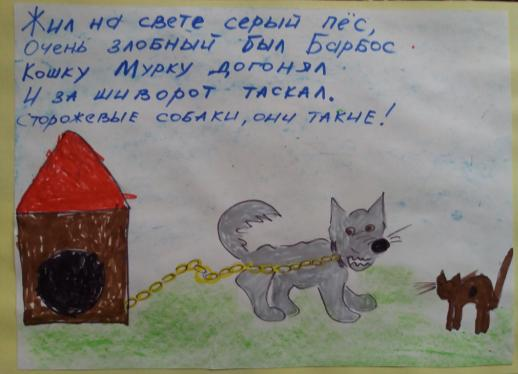 Жил на свете серый пёс,
Очень злобный был Барбос
Кошку Мурку догонял
И за шиворот таскал.
Сторожевые собаки, они такие!